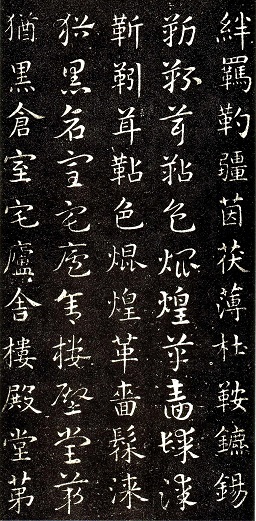 絆羈靮疆茵茯薄杜鞍鑣鍚
靳靷茸鞊色焜煌革嗇髹漆
靳靷茸鞊色焜煌革嗇髹漆
猶黑倉室宅廬舍樓殿堂第
猶黑倉室宅廬舍樓殿堂第